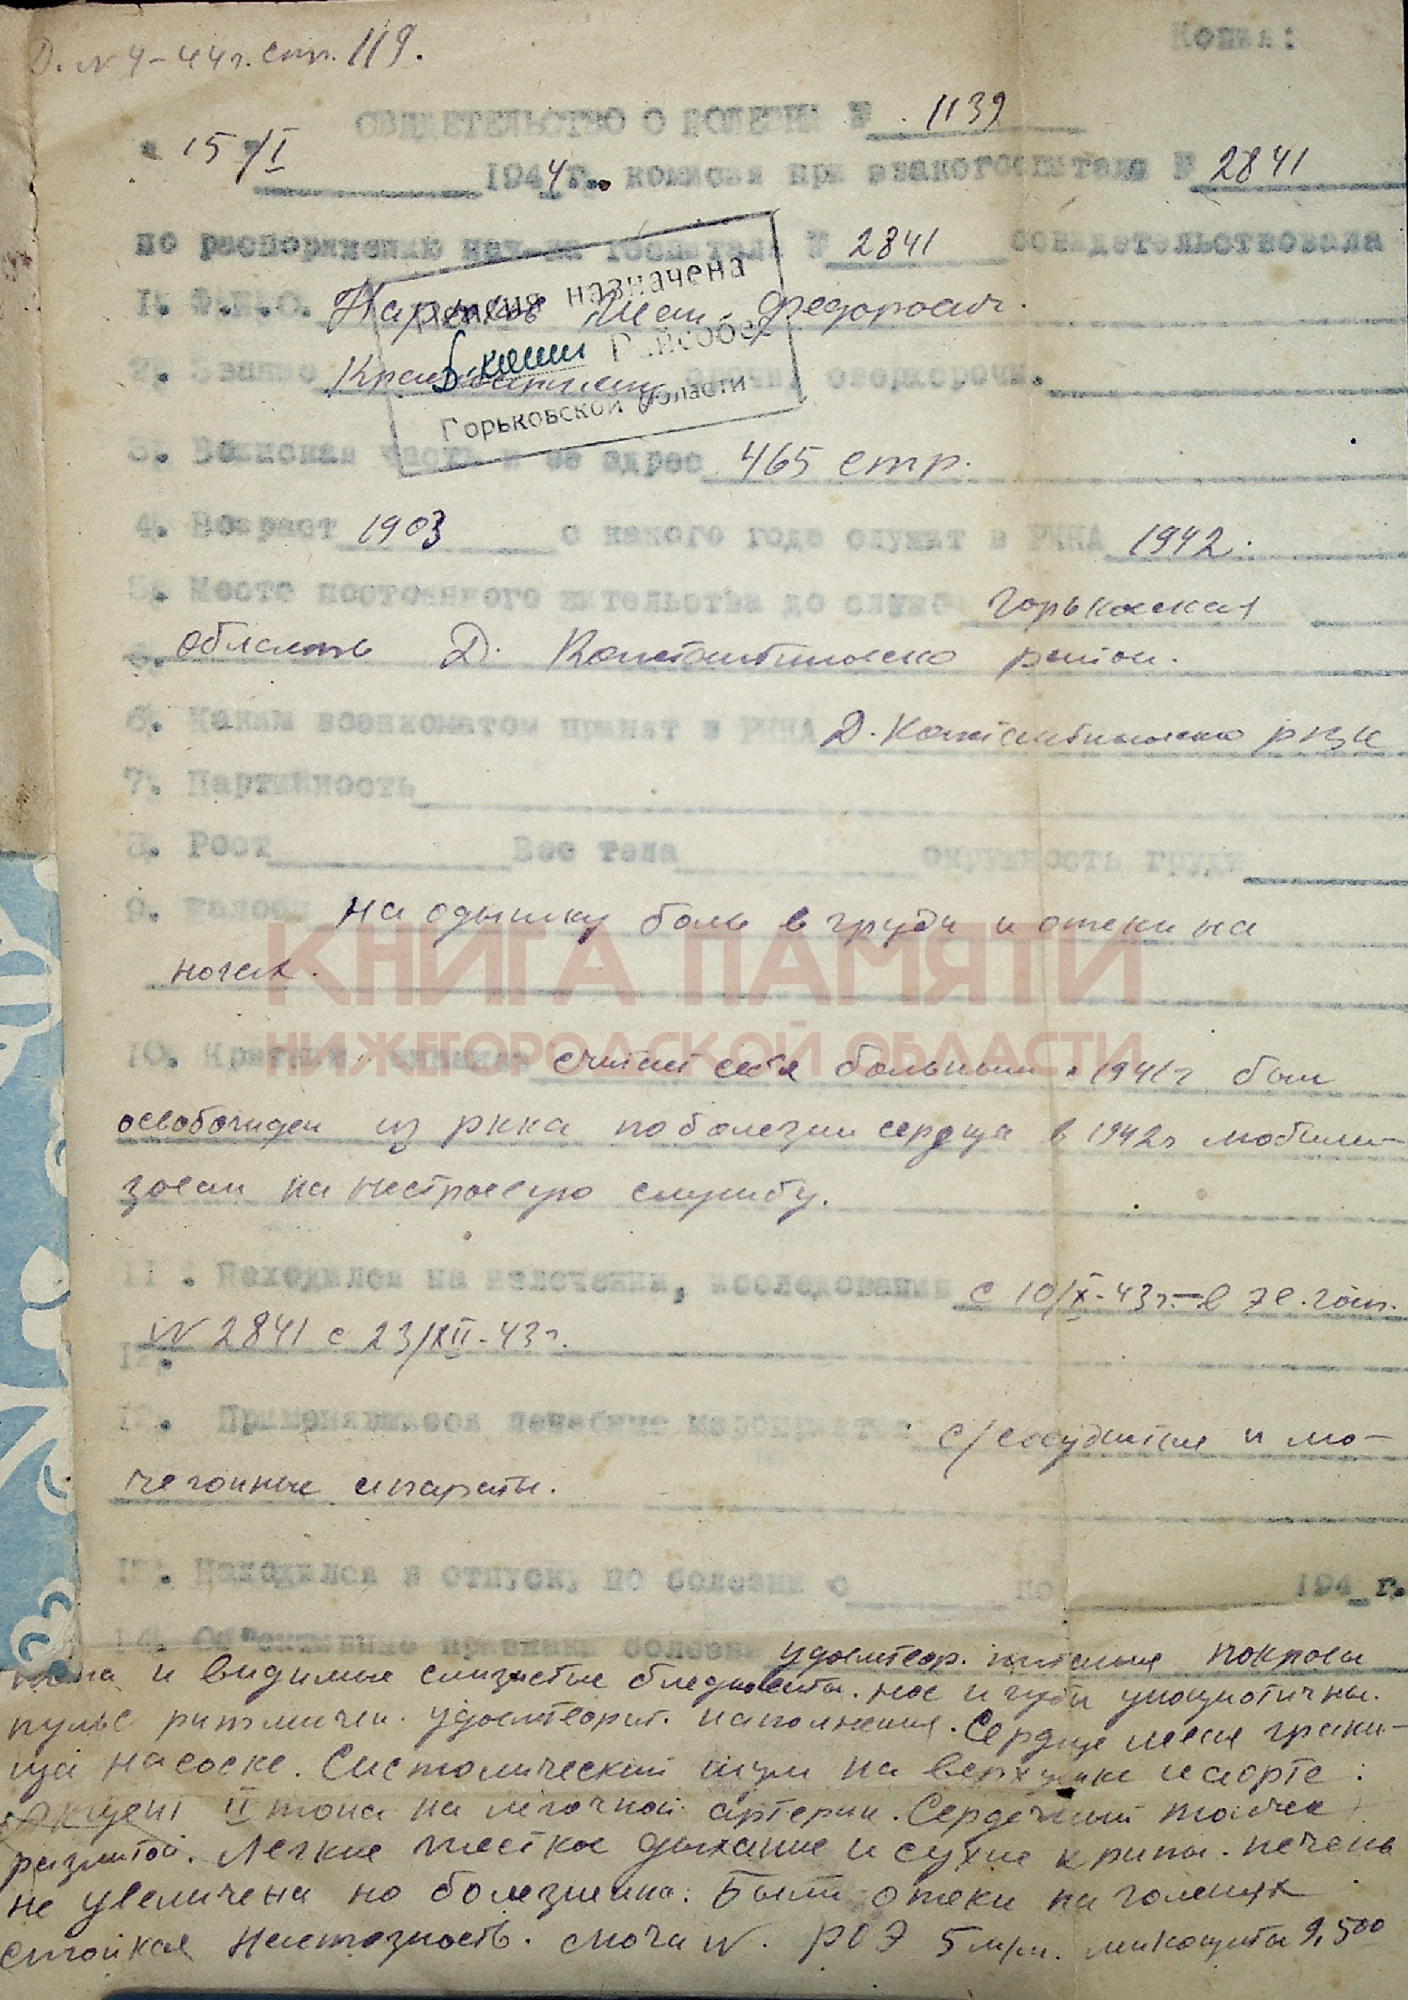 Д. № 4-44г. стр. 119.
Копия:
СВИДЕТЕЛЬСТВО О БОЛЕЗНИ № 1139
" 15 "/I 1944 г. комиссия при эвакогоспитале № 2841
по распоряжению нач-ка госпиталя № 2841 освидетельствовала
1. Ф.И.О. Федорович.
Пенсия назначена
Райсобес
Горьковской области
2. Звание срочн. сверхсрочн.
3. Воинская часть и ее адрес 465 стр.
4. Возраст 1903 с какого года служит в РККА 1942.
5. Место постоянного жительства до служб Горьковская
6. область Д. Константиновско район.
6. Каким военкоматом принят в РККА Д. Константиновско РВК
7. Партийность
8. Рост Вес тела окружность груди
9. Жалобы На одышку боль в груди и отеки на
ногах.
КНИГА ПАМЯТИ
НИЖЕГОРОДСКОЙ ОБЛАСТИ
10. считает себя больным с 1941г был
освобожден из ркка по болезни сердца в 1942г мобили-
зован на нестроевую службу.
11. Находился на излечении, исследовании с 10/X-43г.-в эв. госп.
N 2841 с 23/XII-43г.
12.
12. Применявшиеся лечебные мероприятия с/сосудистые и мо-
чегонные
13. Находился в отпуску по болезни с по 194 г.
14. Объективные признаки болезни удовлетвор. питания покровы
и видимые слизистые бледноваты. нос и губы цианотичны.
пульс ритмичен. удовлетворит. наполнения. Сердце левая грани-
ца на соске. Систолический шум на верхушке и аорте.
Акцент II тона на легочной артерии. Сердечный толчек
разлитой. Легкие жесткое дыхание и сухие хрипы. печень
не увеличена но болезненна. Были отеки на голенях
стойкая моча N. РОЭ 5 м/м. 9,500